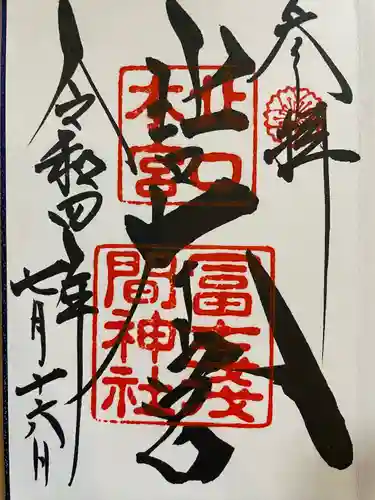 参拝
北口本宮
北口
本宮
冨士浅
間神社
令和四年
七月十六日